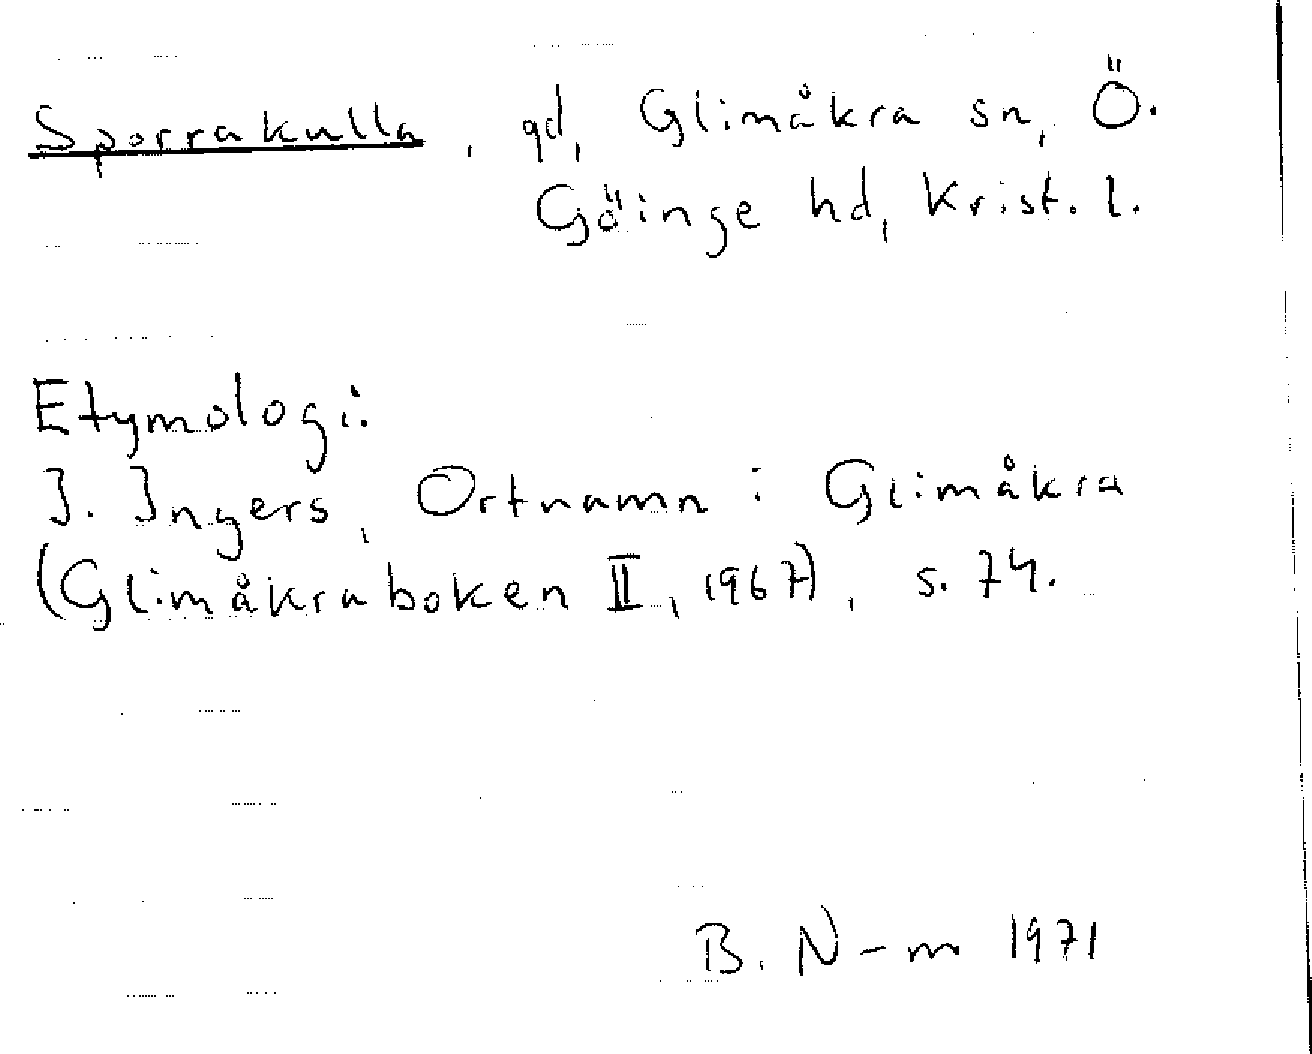 Sporrakulla, gd, Glimåkra sn, Ö.
Göinge hd, Krist. l.
Etymologi:
I. Ingers, Ortnamn i Glimåkra
(Glimåkraboken II, 1967), s. 74.
B. N-m 1971